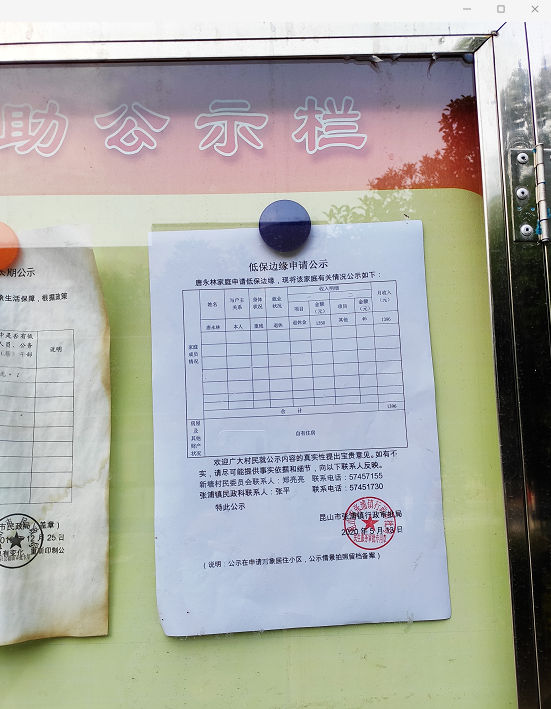 助公示栏
低保边缘申请公示
唐永林家庭申请低保边缘，现将该家庭有关情况公示如下：
家庭成员情况
姓名 与户主关系 身体状况 就业状况 收入明细 月收入（元）
项目 金额（元） 项目 金额（元）
唐永林 本人 重残 退休 退休金 1350 其他 46 1396
合 计 1396
房屋及其他财产状况 自有住房
欢迎广大村民就公示内容的真实性提出宝贵意见。如有不
实，请尽可能提供事实依据和细节，向以下联系人反映。
新塘村民委员会联系人：郑亮亮 联系电话：57457155
张浦镇民政科联系人：张平 联系电话：57451730
特此公示
昆山市张浦镇行政审批局
2020年5月13日
（说明：公示在申请对象居住小区，公示情景拍照留档备案）
长期公示
生活保障，根据政策
中是否有低
人员、公务
（居）干部
说明
市民政局（盖章）
12月25日
有变化，重新印制公